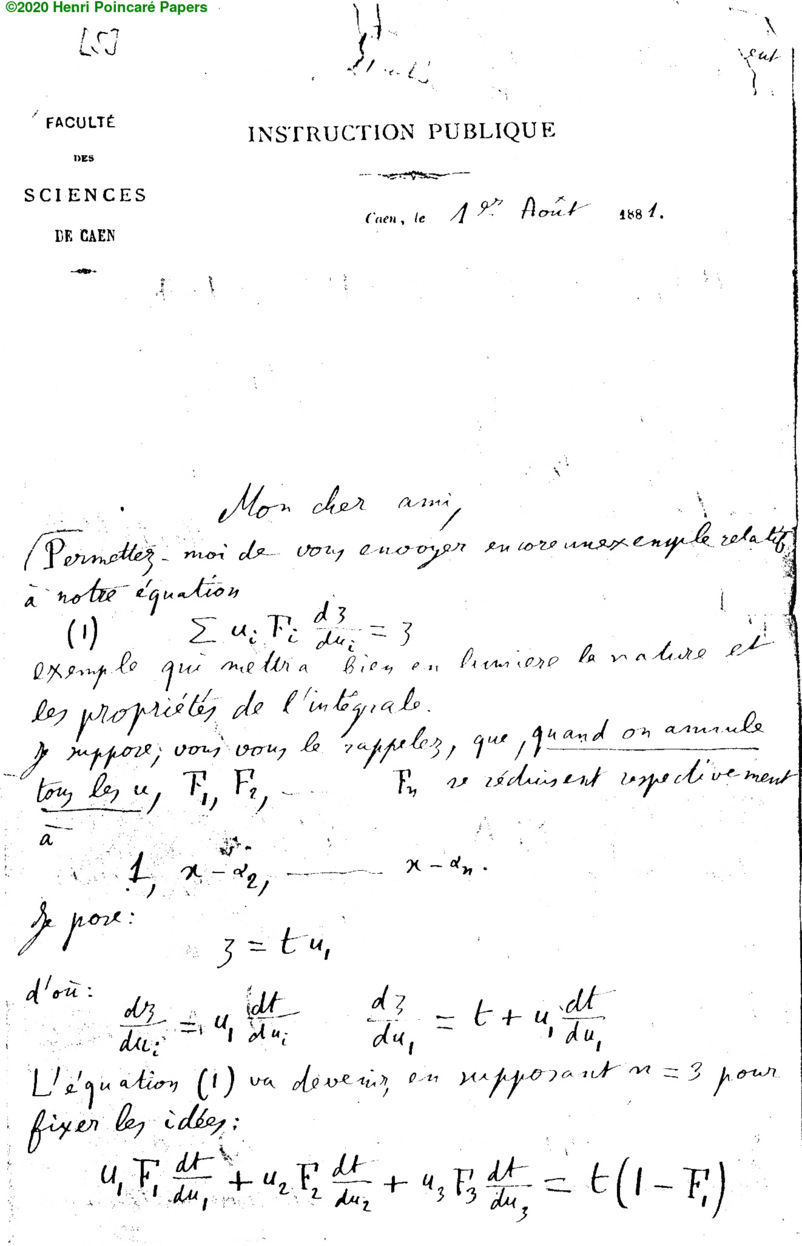 ©2020 Henri Poincaré Papers
[5]
FACULTÉ
DES
SCIENCES
DE CAEN
INSTRUCTION PUBLIQUE
Caen, le 1er Août 1881.
Mon cher ami,
Permettez-moi de vous envoyer encore un exemple relatif
à notre équation
(1) Σ u_i F_i dz/du_i = z
exemple qui mettra bien en lumiere la nature et
les propriétés de l'intégrale.
Je suppose, vous vous le rappelez, que, quand on annule
tous les u, F_1, F_2, ... F_n se réduisent respectivement
à
1, x - α_2, ——— x - α_n.
Je pose:
z = t u_1
d'où:
dz/du_i = u_1 dt/du_i dz/du_1 = t + u_1 dt/du_1
L'équation (1) va devenir, en supposant n = 3 pour
fixer les idées:
u_1 F_1 dt/du_1 + u_2 F_2 dt/du_2 + u_3 F_3 dt/du_3 = t(1 - F_1)